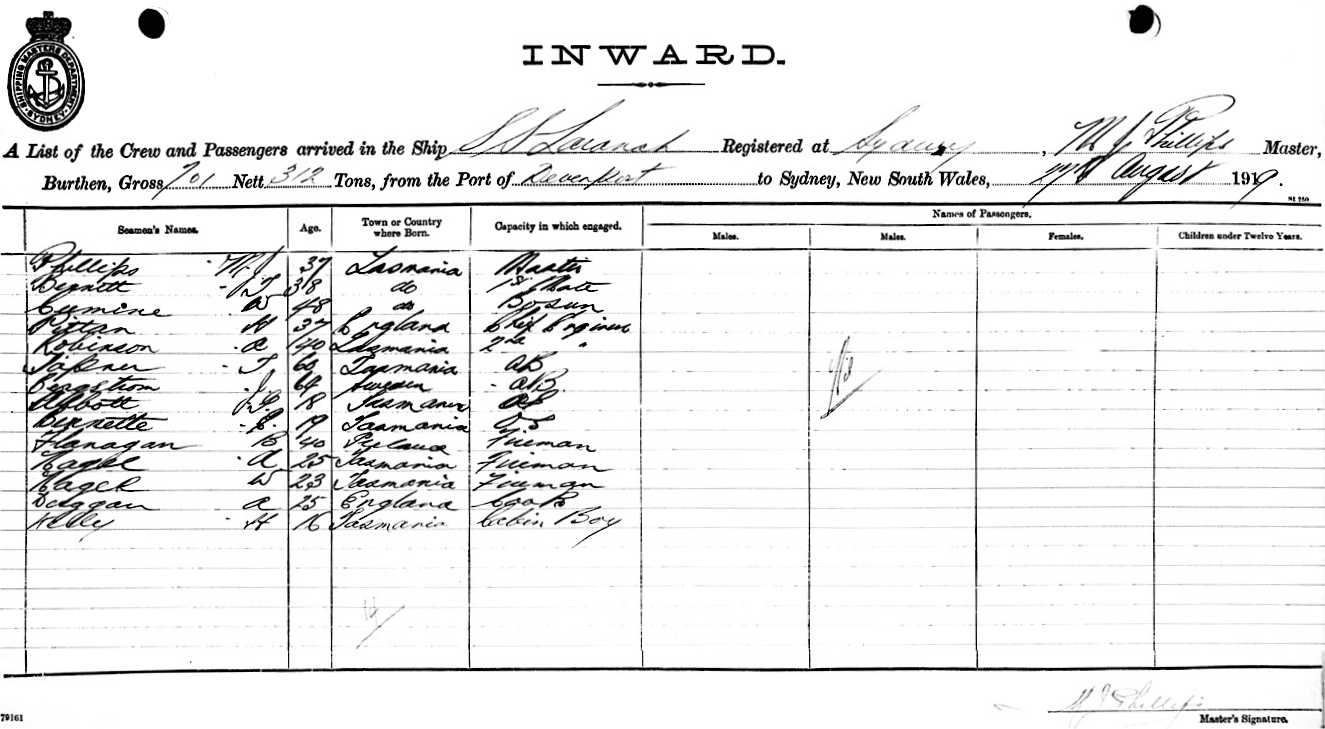 SHIPPING MASTERS DEPARTMENT SYDNEY
INWARD.
A List of the Crew and Passengers arrived in the Ship SS Registered at Sydney, M J Phillips Master,
Burthen, Gross 701 Nett 312 Tons, from the Port of Devenport to Sydney, New South Wales, August 1919.
SI 250
Seamen's Names. Age. Town or Country where Born. Capacity in which engaged. Names of Passengers.
Males. Males. Females. Children under Twelve Years.
Phillips M.J. 37 Tasmania Master
Bennett 38 do 1st Mate
Cumine W 48 do Bosun
Pittan H 37 England Chief Engineer
Robinson a 40 Tasmania 2nd "
T 60 Tasmania AB
Bergstrom J 64 Sweden AB
Abbott 18 Tasmania
Bennette E. 19 Tasmania OS
Flanagan B 40 Fireman
A 25 Tasmania Fireman
W 23 Tasmania Fireman
Duggan a 25 England Cook
Kelly H 16 Tasmania Cabin Boy
14/
M J Phillips
79161
Master's Signature.